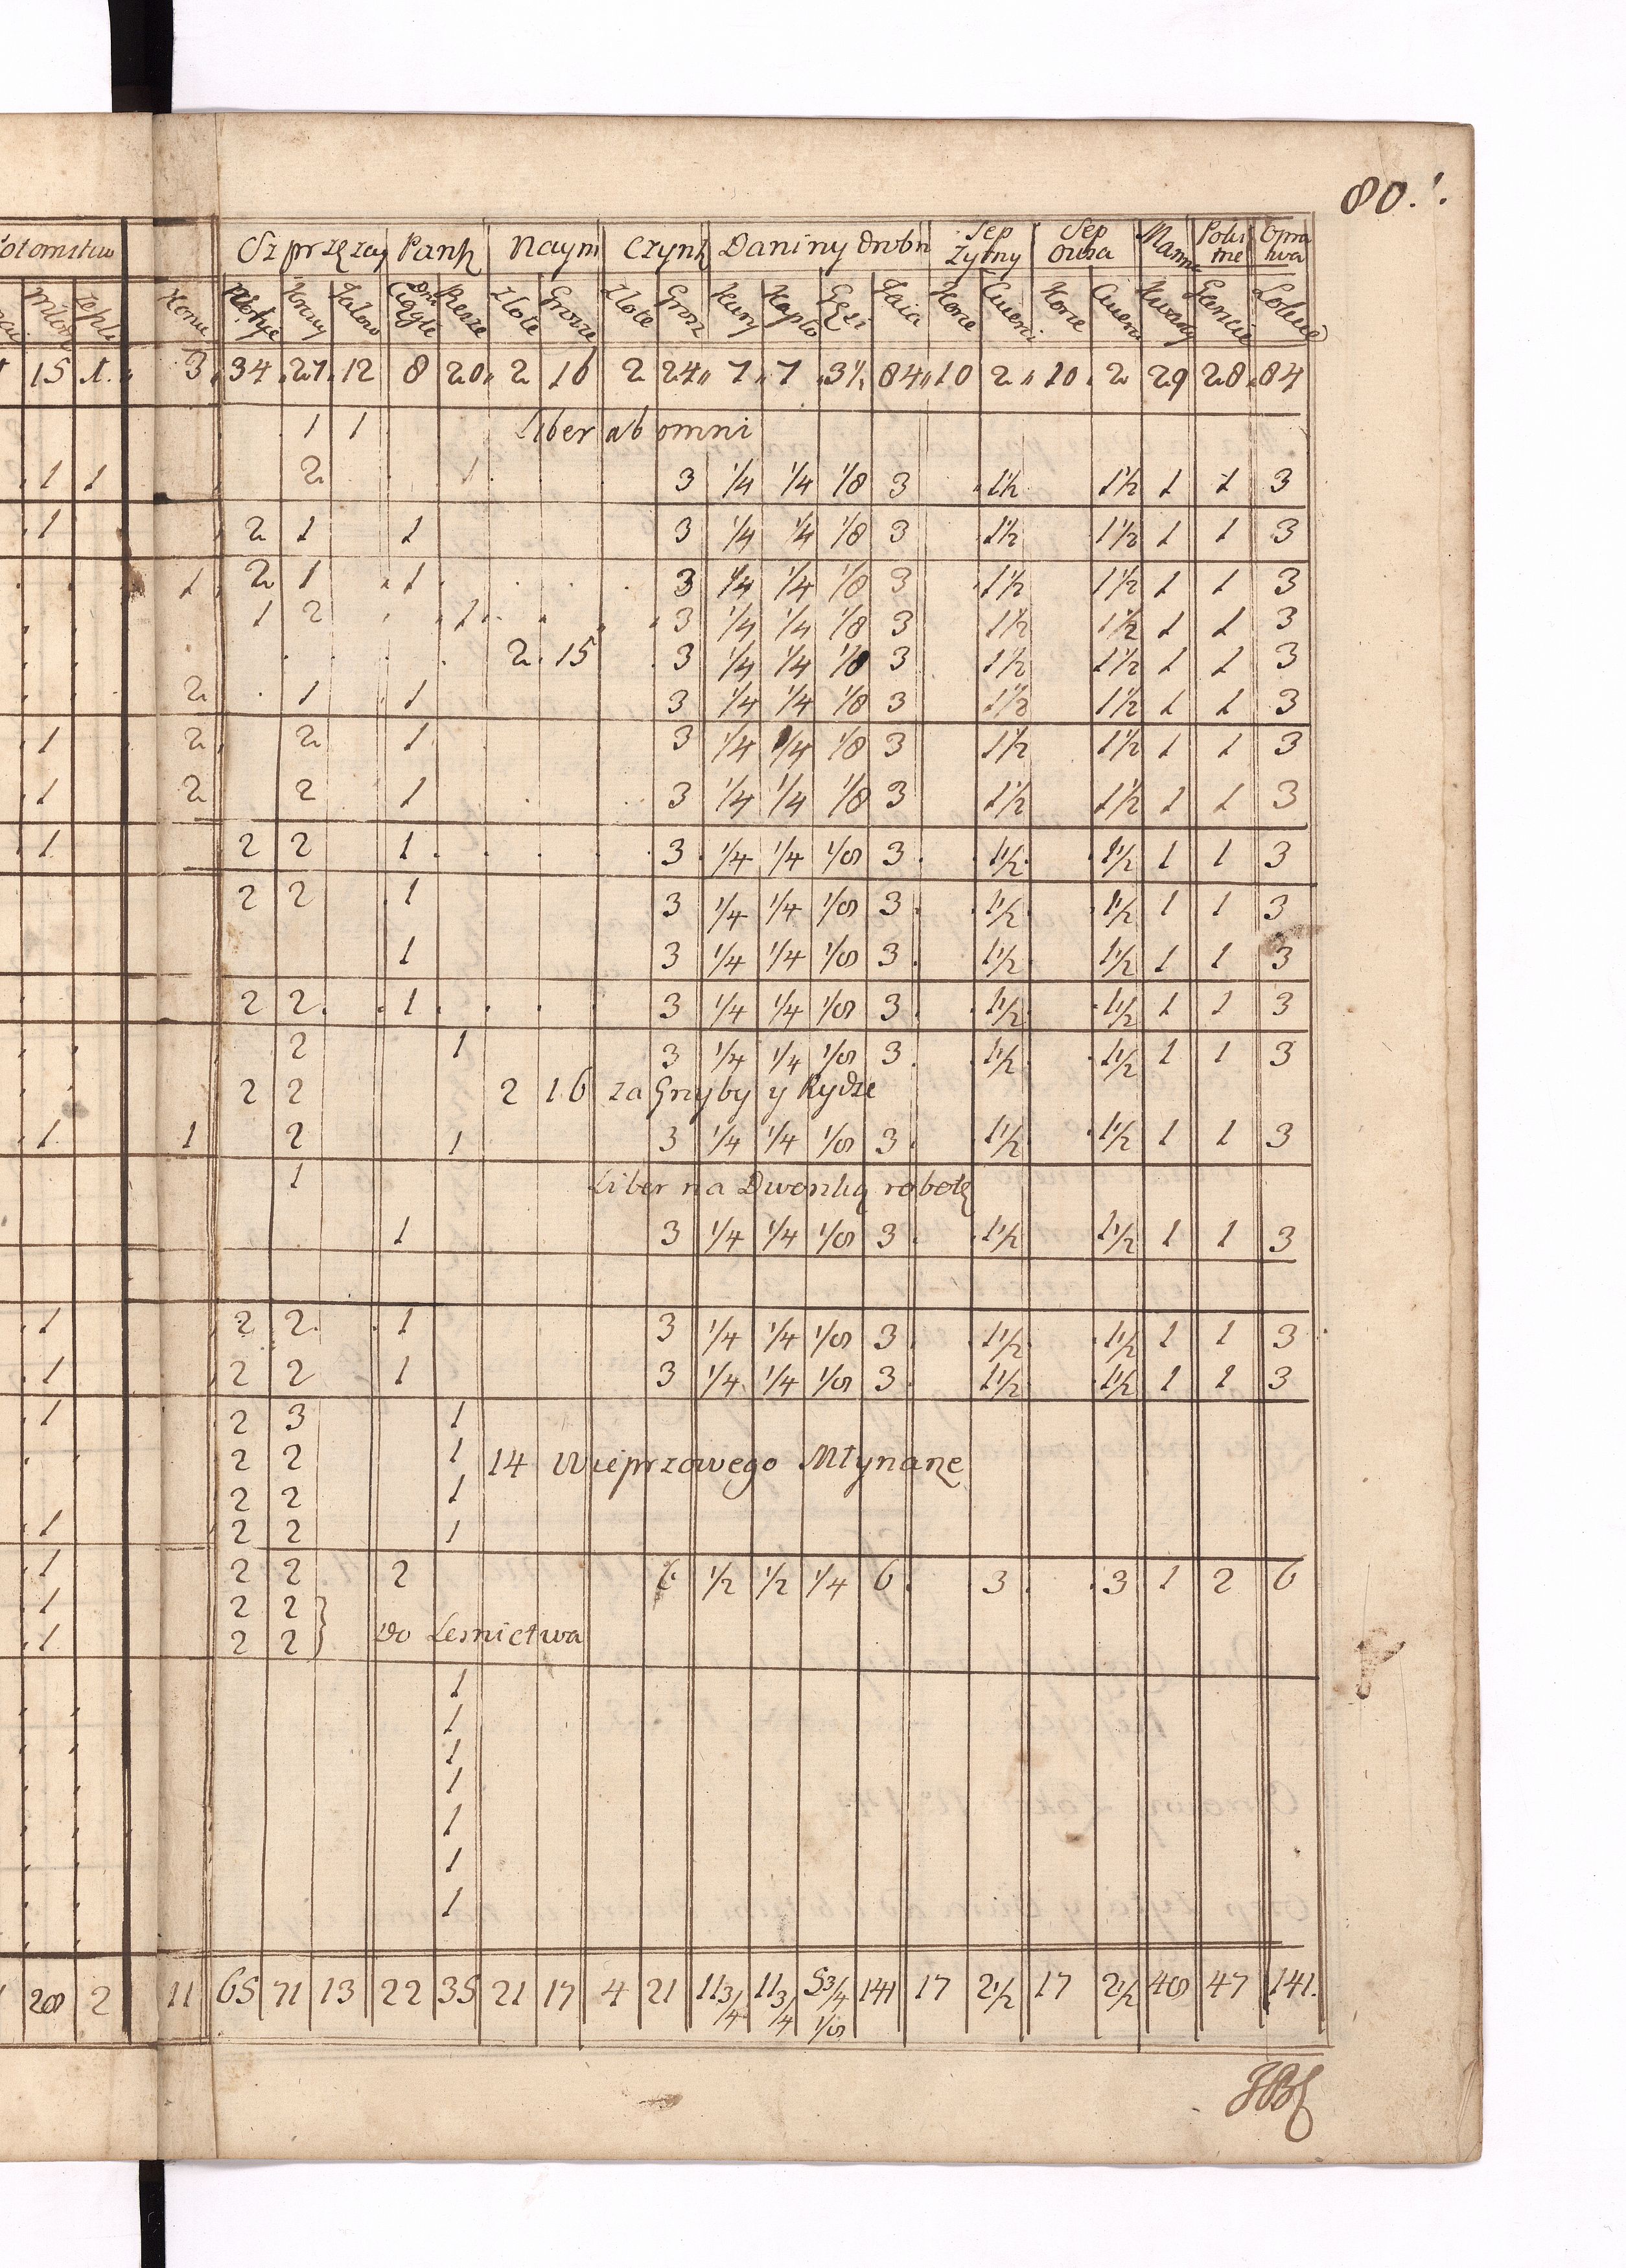 80.
Sprzężay Pańs Naym Czynsz Daniny drobn Sep Żytny Sep owsa Opra wa
Konie Krowy Ciągłe Dni Piesze Złote Grosze Złote Grosz Kury Kapło Gęsi Jaia Korce Korce
15 1 3 34 27 12 8 20 2 16 2 24 7 7 3½ 84 10 2 10 2 29 28 84
1 1 Liber ab omni
1 1 2 1 3 1/4 1/4 1/8 3 1½ 1½ 1 1 3
1 2 1 1 3 1/4 1/4 1/8 3 1½ 1½ 1 1 3
1 2 1 1 3 1/4 1/4 1/8 3 1½ 1½ 1 1 3
1 2 1 3 1/4 1/4 1/8 3 1½ 1½ 1 1 3
2 15 3 1/4 1/4 1/8 3 1½ 1½ 1 1 3
2 1 1 3 1/4 1/4 1/8 3 1½ 1½ 1 1 3
1 2 2 1 3 1/4 1/4 1/8 3 1½ 1½ 1 1 3
1 2 2 1 3 1/4 1/4 1/8 3 1½ 1½ 1 1 3
1 2 2 1 3 1/4 1/4 1/8 3 1½ 1½ 1 1 3
2 2 1 3 1/4 1/4 1/8 3 1½ 1½ 1 1 3
1 3 1/4 1/4 1/8 3 1½ 1½ 1 1 3
2 2 1 3 1/4 1/4 1/8 3 1½ 1½ 1 1 3
2 1 3 1/4 1/4 1/8 3 1½ 1½ 1 1 3
2 2 2 16 za Grzyby y Rydze
1 1 2 1 3 1/4 1/4 1/8 3 1½ 1½ 1 1 3
1 Liber na Dworską robotę
1 3 1/4 1/4 1/8 3 1½ 1½ 1 1 3
1 2 2 1 3 1/4 1/4 1/8 3 1½ 1½ 1 1 3
1 2 2 1 3 1/4 1/4 1/8 3 1½ 1½ 1 1 3
1 2 3 1
2 2 1 14 Wieprzowego Młynarze
2 2 1
1 2 2 1
1 2 2 2 6 1/2 1/2 1/4 6 3 3 1 2 6
1 2 2
1 2 2 } do Lesnictwa
1
1
1
1
1
1
1
28 2 11 65 71 13 22 35 21 17 4 21 11 3/4 11 3/4 5 3/4 1/8 141 17 2½ 17 2½ 48 47 141.